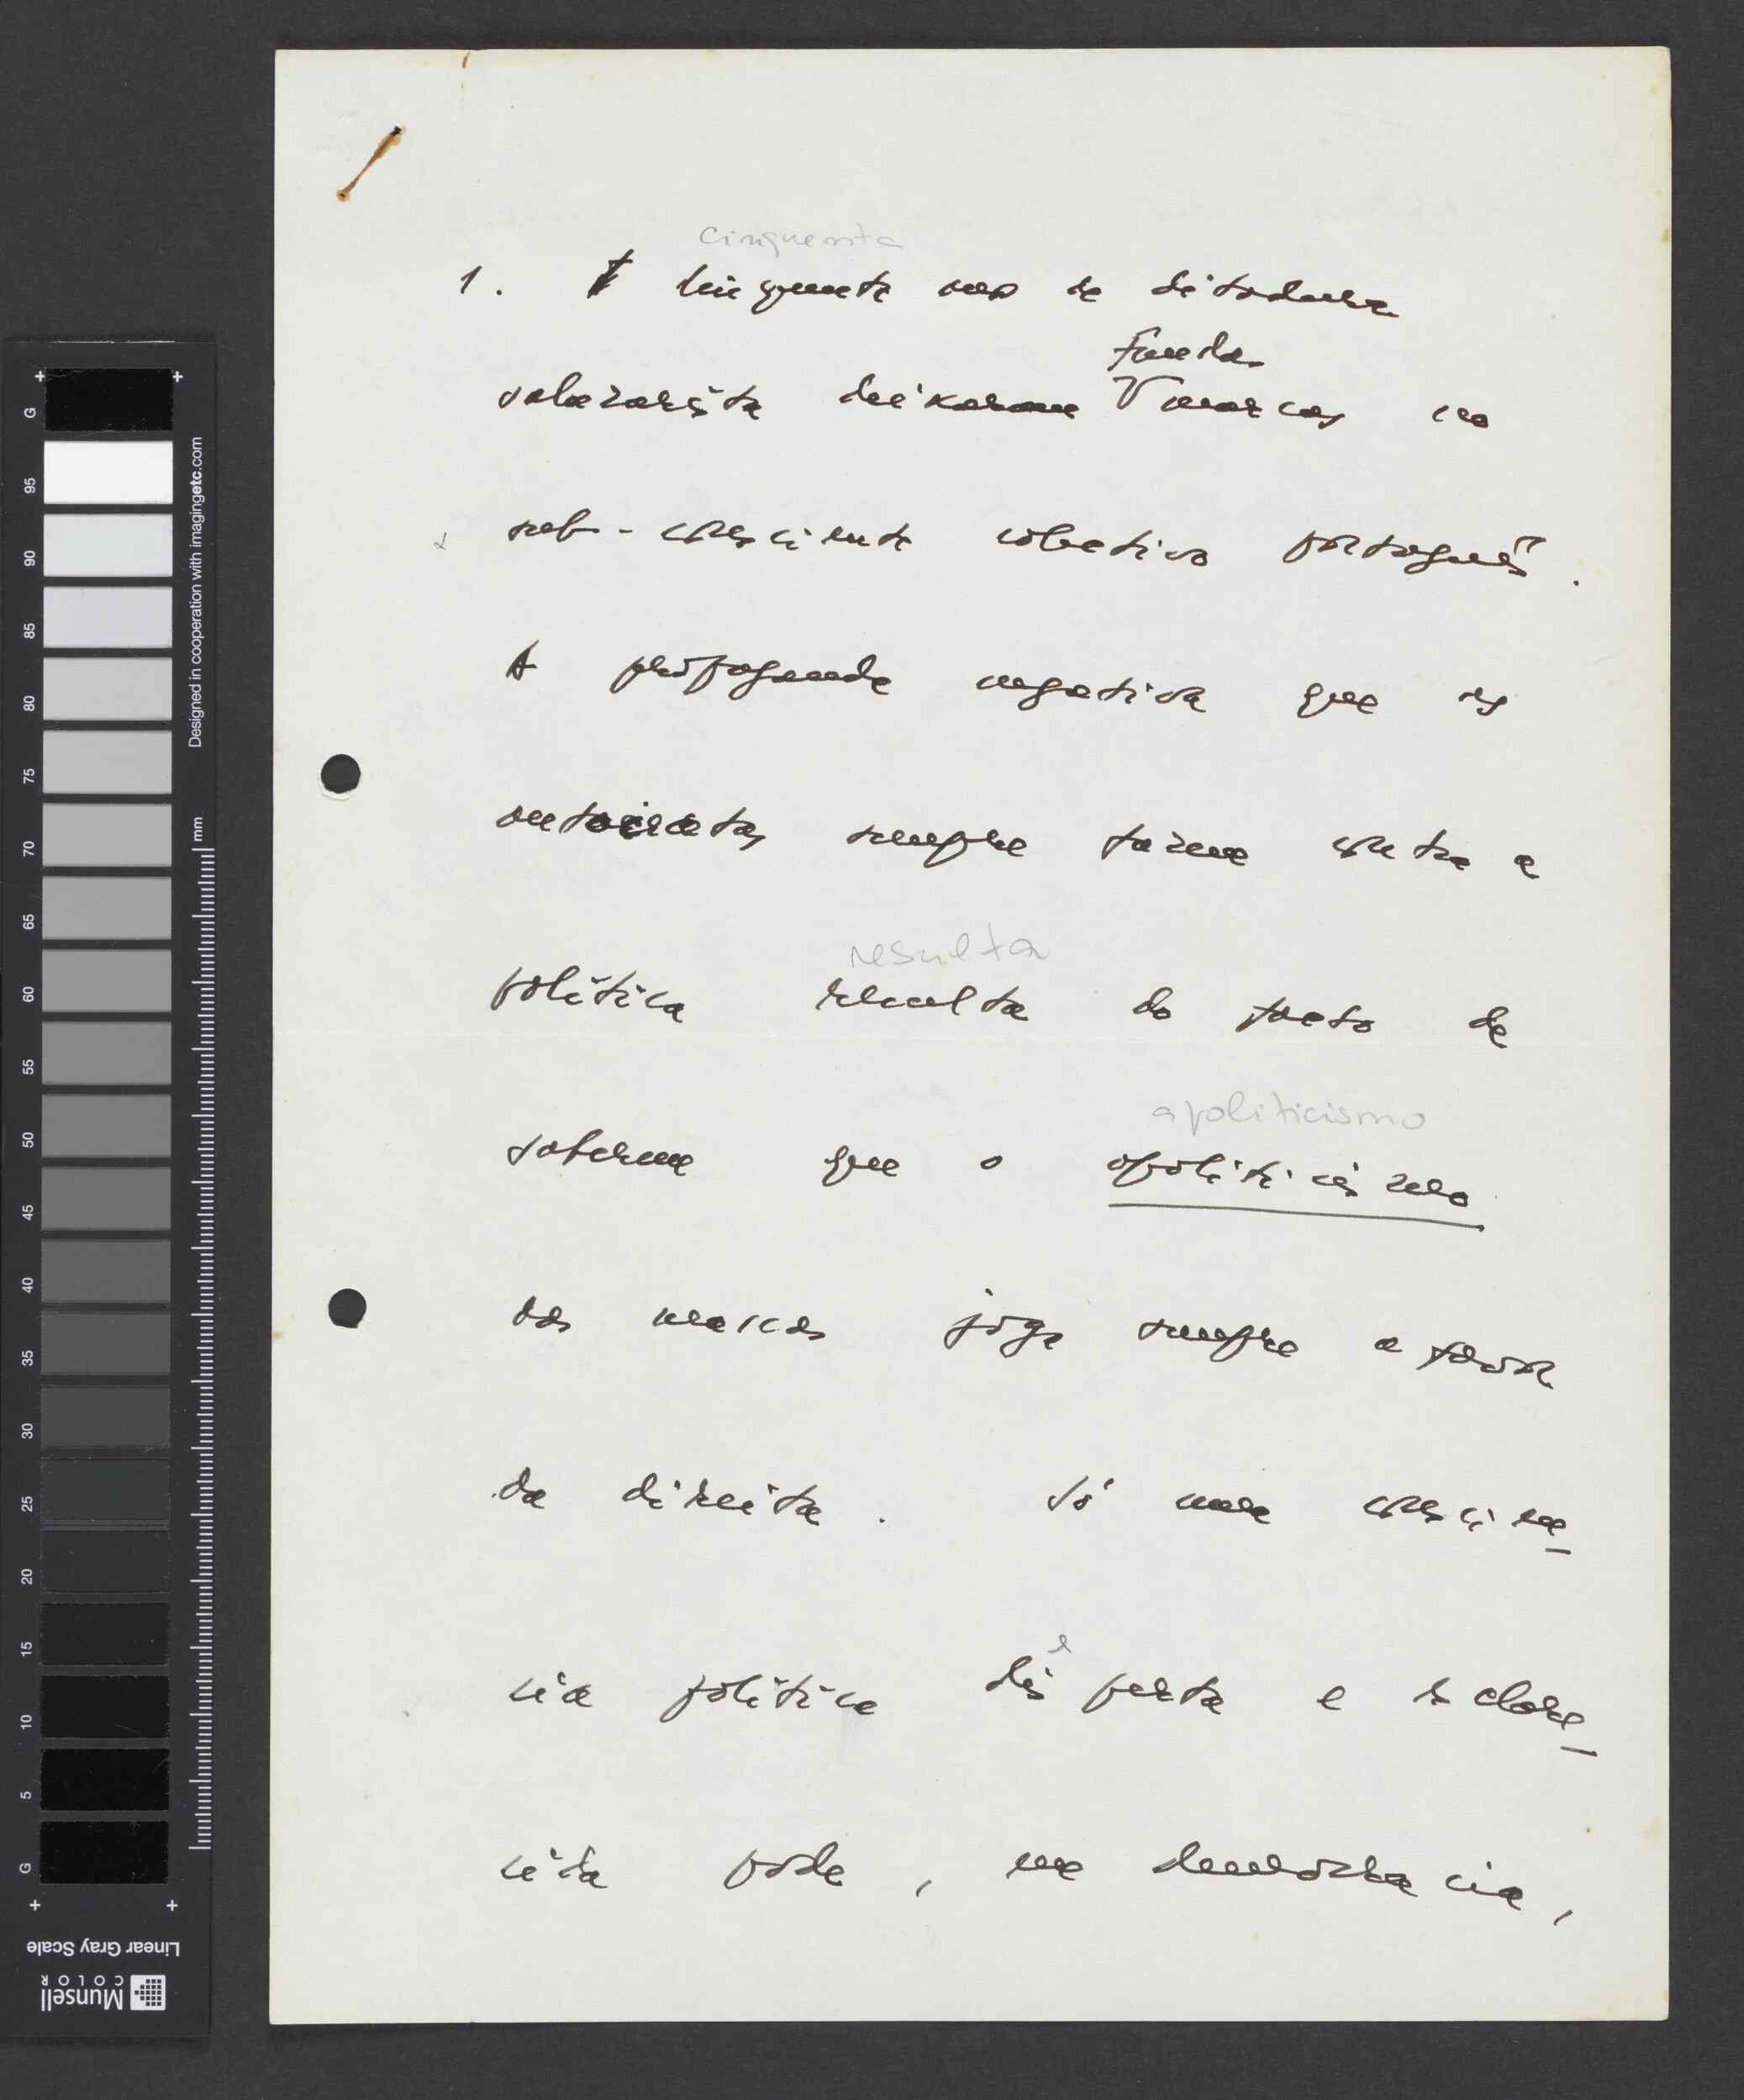 cinquenta
1. Cinquenta anos de ditadura
fundas
salazarista deixaram marcas no
sub-consciente colectivo português.
A propaganda negativa que os
autocratas sempre fazem contra a
resulta
política resulta do facto de
apoliticismo
saberem que o apoliticismo
das massas joga sempre a favor
da direita. Só uma consciên
e
cia política desperta e esclare
cida pode, na democracia,
G
95
90
85
80
75
70
65
60
55
50
45
40
35
30
25
20
15
10
5
G
mm
Designed in cooperation with imagingetc.com
Linear Gray Scale
Munsell
COLOR